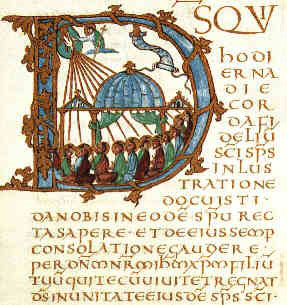 DSQVI
HODI
ERNA
DIE
COR
DAFI
DELIŪ
SC̄ISP̄S
INLUS
TRATIONE
DOCUISTI
DANOBISINEODĒSP̄UREC
TASAPERE·ETDEEIUSSEMP
CONSOLATIONEGAUDERE·
PERDN̄MNR̄MIHM̄XPM̄FILIŪ
TUŪQUITECŪUIUITETREGNAT
DS̄INUNITATEEIUSDĒSP̄SSC̄I